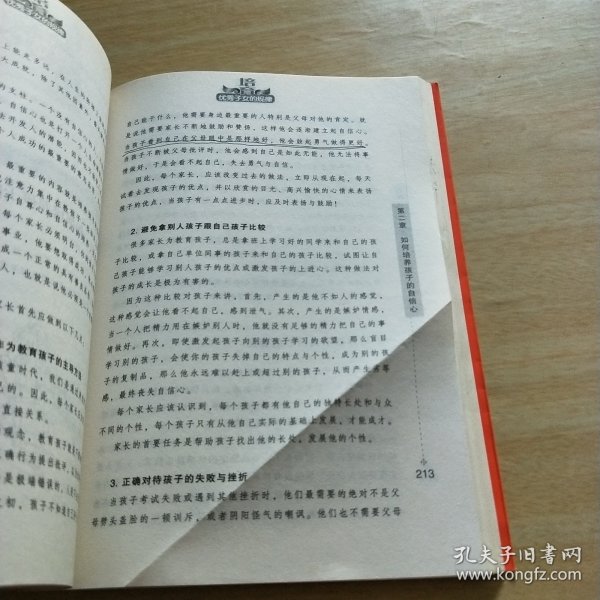 培
优秀子女的规律
自己能干什么，他需要身边最重要的人特别是父母对他的肯定。就
是说他需要家长不断地鼓励和赞扬，这样他会逐渐建立起自信心。
当孩子看到自己在父母眼中是那样地好，他会鼓起勇气做得更好，
当孩子不断被父母批评时，他会感到自己是如此无能，他无法将事
情做好，于是会看不起自己，失去勇气与自信。
因此，每个家长，应该改变过去的做法，立即从现在起，每天
试着去发现孩子的优点，并以欣赏的目光、高兴愉快的心情来表扬
孩子的优点，当孩子有一点点进步时，应及时表扬与鼓励！
2. 避免拿别人孩子跟自己孩子比较
很多家长为教育孩子，总是拿班上学习好的同学来和自己的孩
子比较，或拿自己单位同事的孩子来和自己的孩子比较，试图让自
己孩子能够学习别人孩子的优点或激发孩子的上进心。这种做法对
孩子的成长是极为有害的。
因为这种比较对孩子来讲，首先，产生的是他不如人的感觉，
这感觉会让他看不起自己，感到泄气。其次，产生的是嫉妒情感，
当一个人把精力用在嫉妒别人时，他就没有足够的精力把自己的事
情做好。再次，即使激发起孩子向别的孩子学习的欲望，那么盲目
学习别的孩子，会使你的孩子失掉自己的特点与个性，成为别的孩
子的复制品，那么他永远难以赶上或超过别的孩子，从而产生自卑
感，最终丧失自信心。
每个家长应该认识到，每个孩子都有他自己的独特长处和与众
不同的个性，每个孩子只有从他自己实际的基础上发展，才能成才。
家长的首要任务是帮助孩子找出他的长处，发展他的个性。
3. 正确对待孩子的失败与挫折
当孩子考试失败或遇到其他挫折时，他们最需要的绝对不是父
母劈头盖脸的一顿训斥，或者阴阳怪气的嘲讽。他们也不需要父母
第二章 如何培养孩子的自信心
213
孔夫子旧书网
www.kongfz.com